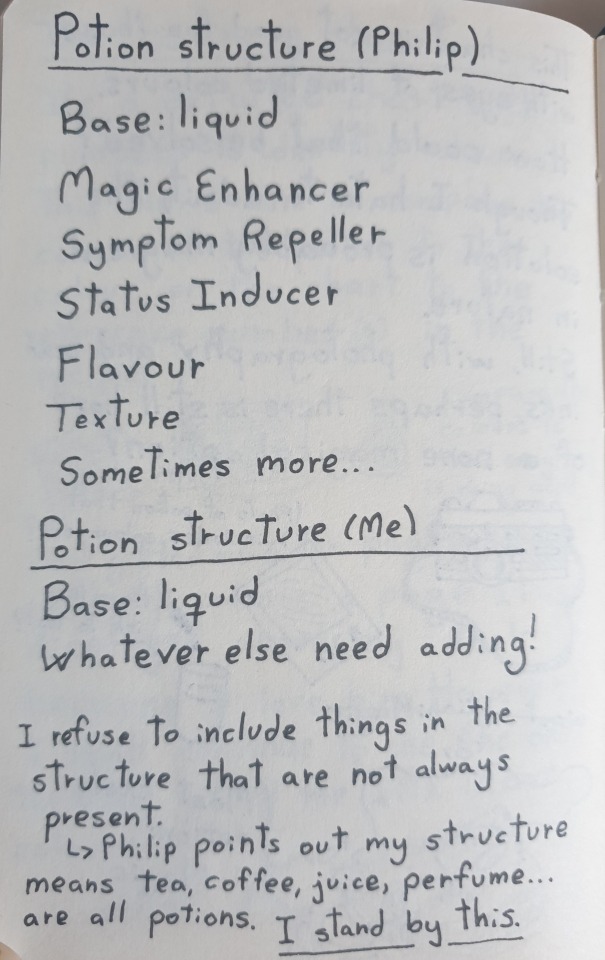 Potion structure (Philip)
Base: liquid
Magic Enhancer
Symptom Repeller
Status Inducer
Flavour
Texture
Sometimes more...
Potion structure (Me)
Base: liquid
Whatever else need adding!
I refuse to include things in the
structure that are not always
present.
↳ Philip points out my structure
means tea, coffee, juice, perfume...
are all potions. I stand by this.